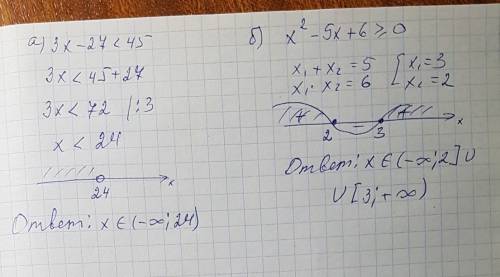 а) 3x-27<45
3x<45+27
3x<72 |:3
x<24
24 x
Ответ: x∈(-∞;24)
б) x²-5x+6≥0
x₁+x₂=5 [x₁=3
x₁·x₂=6 [x₂=2
+ - + x
2 3
Ответ: x∈(-∞;2]∪
∪[3;+∞)